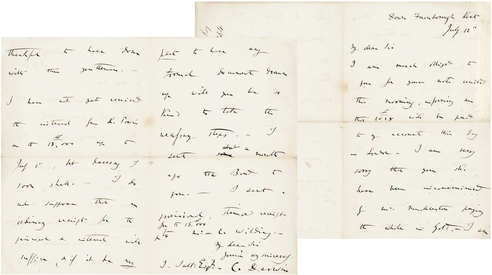 Down Farnborough Kent
July 12th
My dear Sir
I am much obliged to
you for your note received
this morning, informing me
the will be paid
to my account this day
in London. — I am very
sorry that you should
have been inconvenienced
by paying
the whole in Gold; — I am
thankful to have done
with this gentleman. —
I have not yet received
the interest from
on the 13,000 up to
July 1st, but I
soon shall. — I do
not suppose that an
ordinary receipt for the
principal & interest will
suffice, & if it be
to have any
formal document drawn
up will you be so
kind to take the
necessary steps. — I
sent about a month
ago the Bond to
you. — I sent a
provisional, receipt
for the 13,000
to Mr. C. Wilding. —
My dear Sir
Yours very sincerely
J. Salt Esq C. Darwin